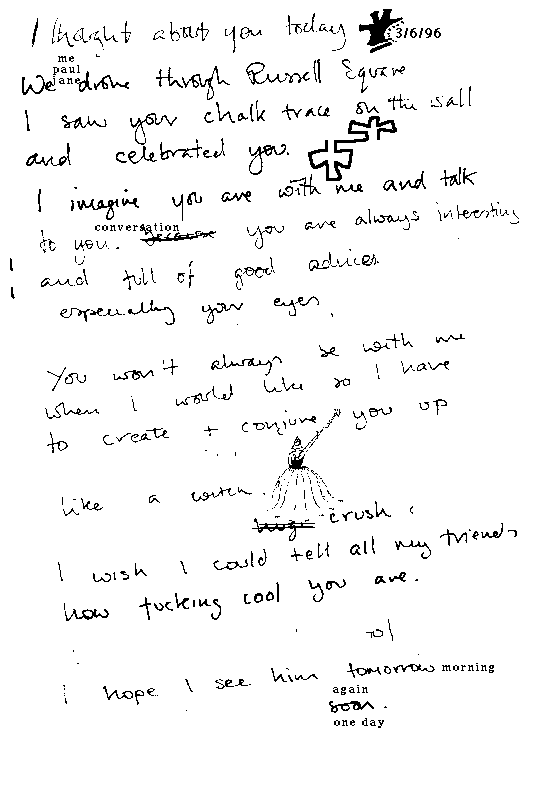 I thought about you today 3/6/96
me
paul
jane
We drove through Russell Square
I saw your chalk trace on the wall
and celebrated you.
I imagine you are with me and talk
conversation
to you. because you are always interesting
and full of good advices
especially your eyes
You won't always be with me
when I would like so I have
to create + conjure you up
like a witch.
huge crush.
I wish I could tell all my friends
how fucking cool you are.
I hope I see him tomorrow morning
again
soon.
one day